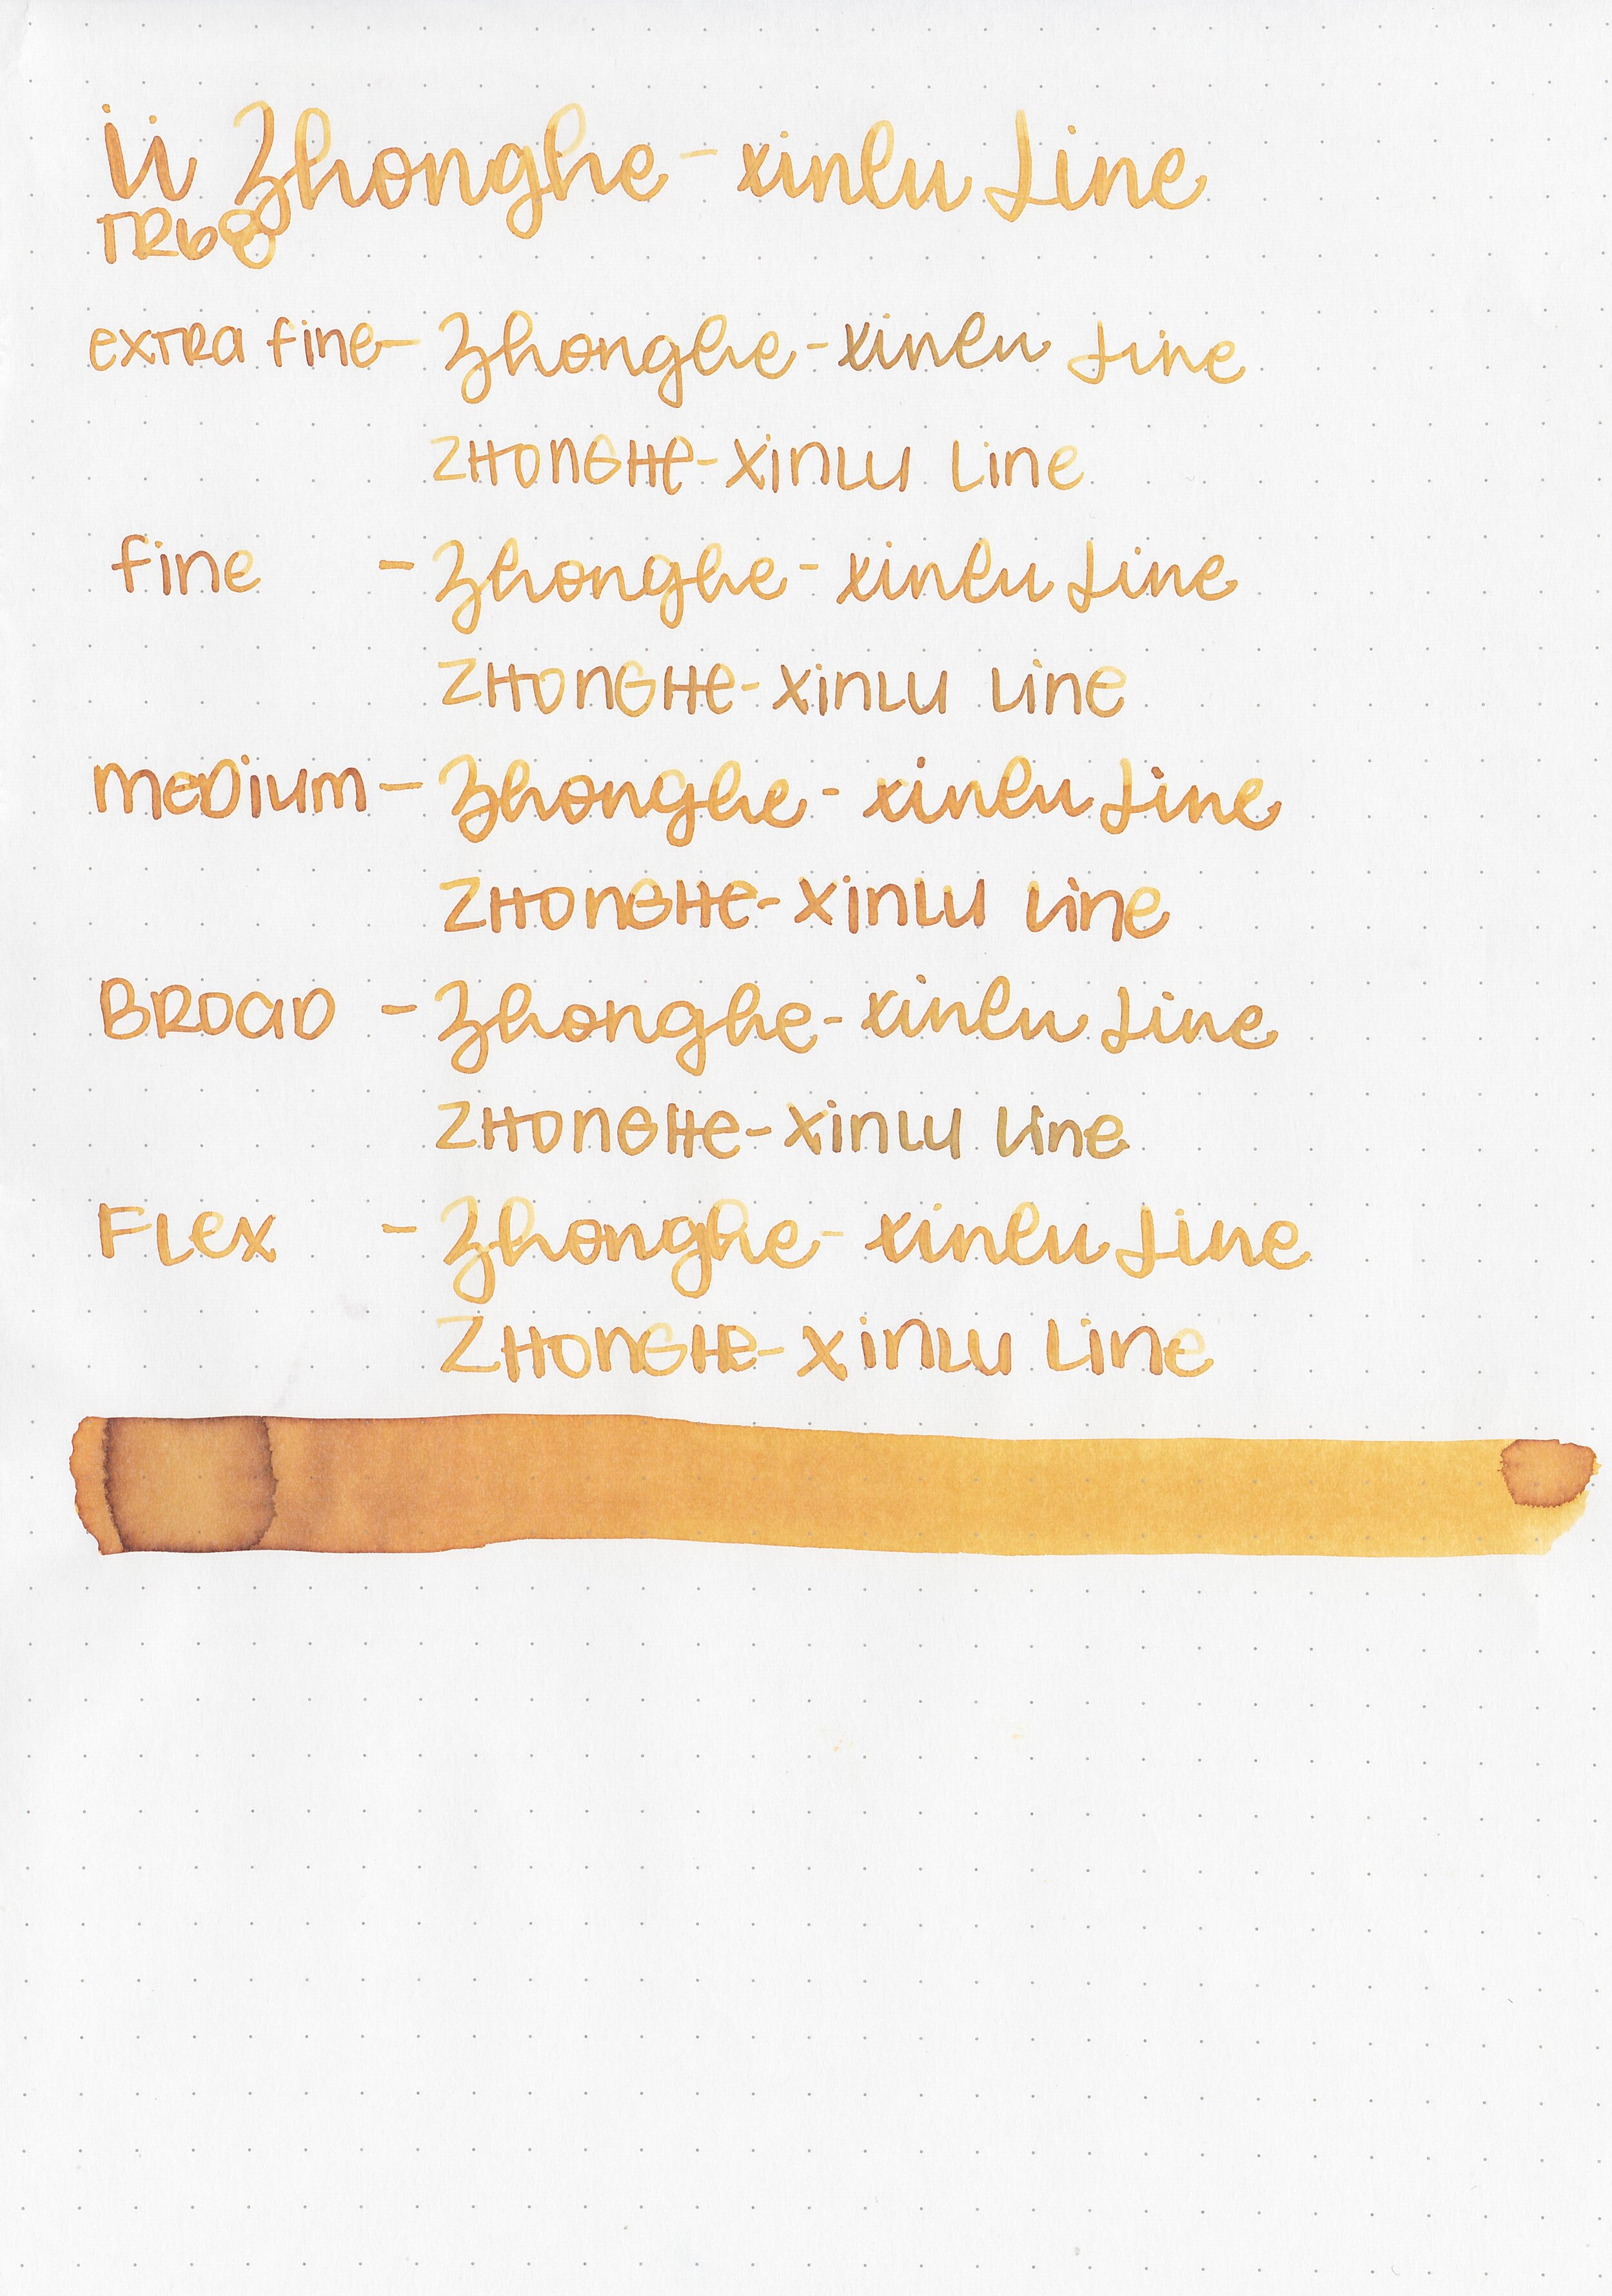 ii Zhonghe-xinlu Line
TR68
extra fine - Zhonghe-xinlu Line
ZHONGHE-XINLU Line
fine - Zhonghe-xinlu Line
ZHONGHE-XINLU Line
medium - Zhonghe-xinlu Line
ZHONGHE-XINLU Line
BROAD - Zhonghe-xinlu Line
ZHONGHE-XINLU Line
FLex - Zhonghe-xinlu Line
ZHONGHE-XINLU Line